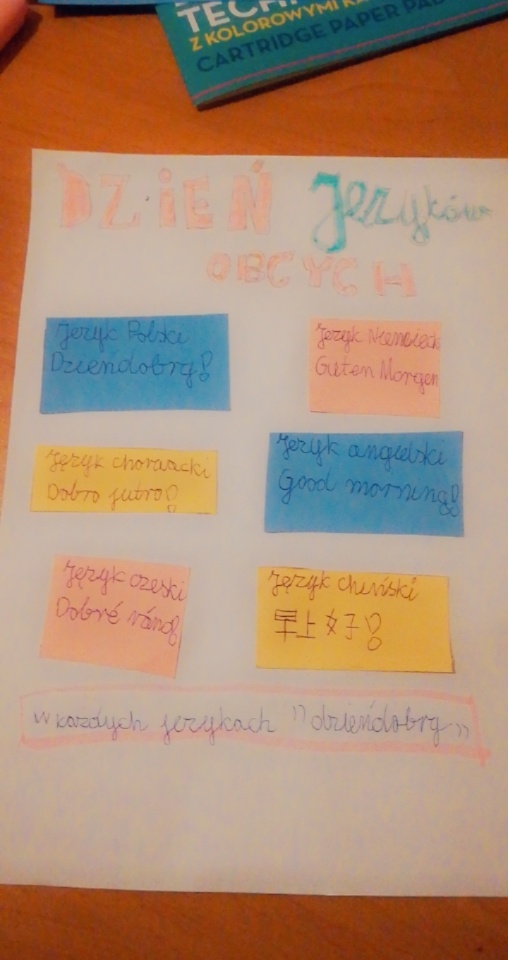 TECH
Z KOLOROWYMI KA
CARTRIDGE PAPER PAD
DZIEŃ Języków
OBCYCH
Język Polski
Dzieńdobry!
Język Niemieck
Guten Morgen
Język chorwacki
Dobro jutro!
Język angielski
Good morning!
Język czeski
Dobré ráno!
Język chiński
早上好!
w każdych językach "dzieńdobry"